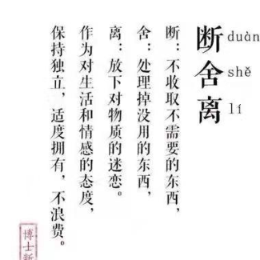 断舍离
duàn
shě
lí
断：不收取不需要的东西，
舍：处理掉没用的东西，
离：放下对物质的迷恋。
作为对生活和情感的态度，
保持独立，适度拥有，不浪费。